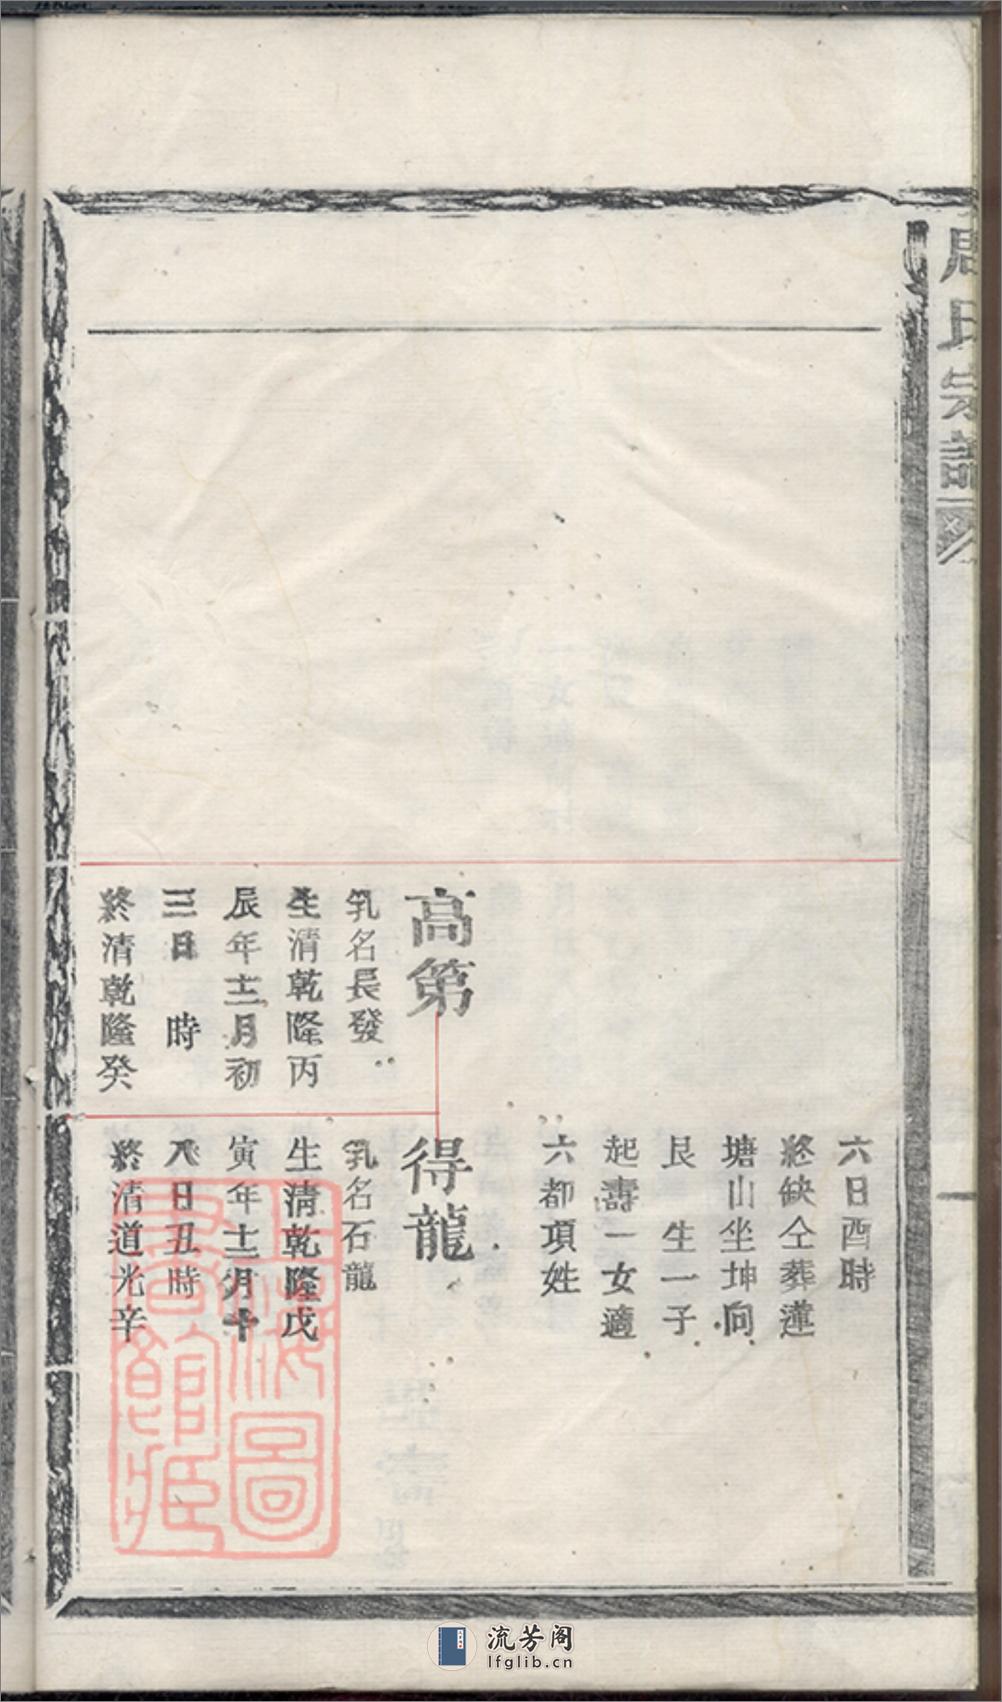 周氏宗譜
高第
乳名長發
生清乾隆丙
辰年十二月初
三日　時
終清乾隆癸
六日酉時
終缺仝葬蓮
塘山坐坤向
艮　生一子
起壽一女適
六都項姓
得龍
乳名石龍
生清乾隆戊
寅年十二月十
八日丑時
終清道光辛
上海圖
書館藏
流芳阁
lfglib.cn